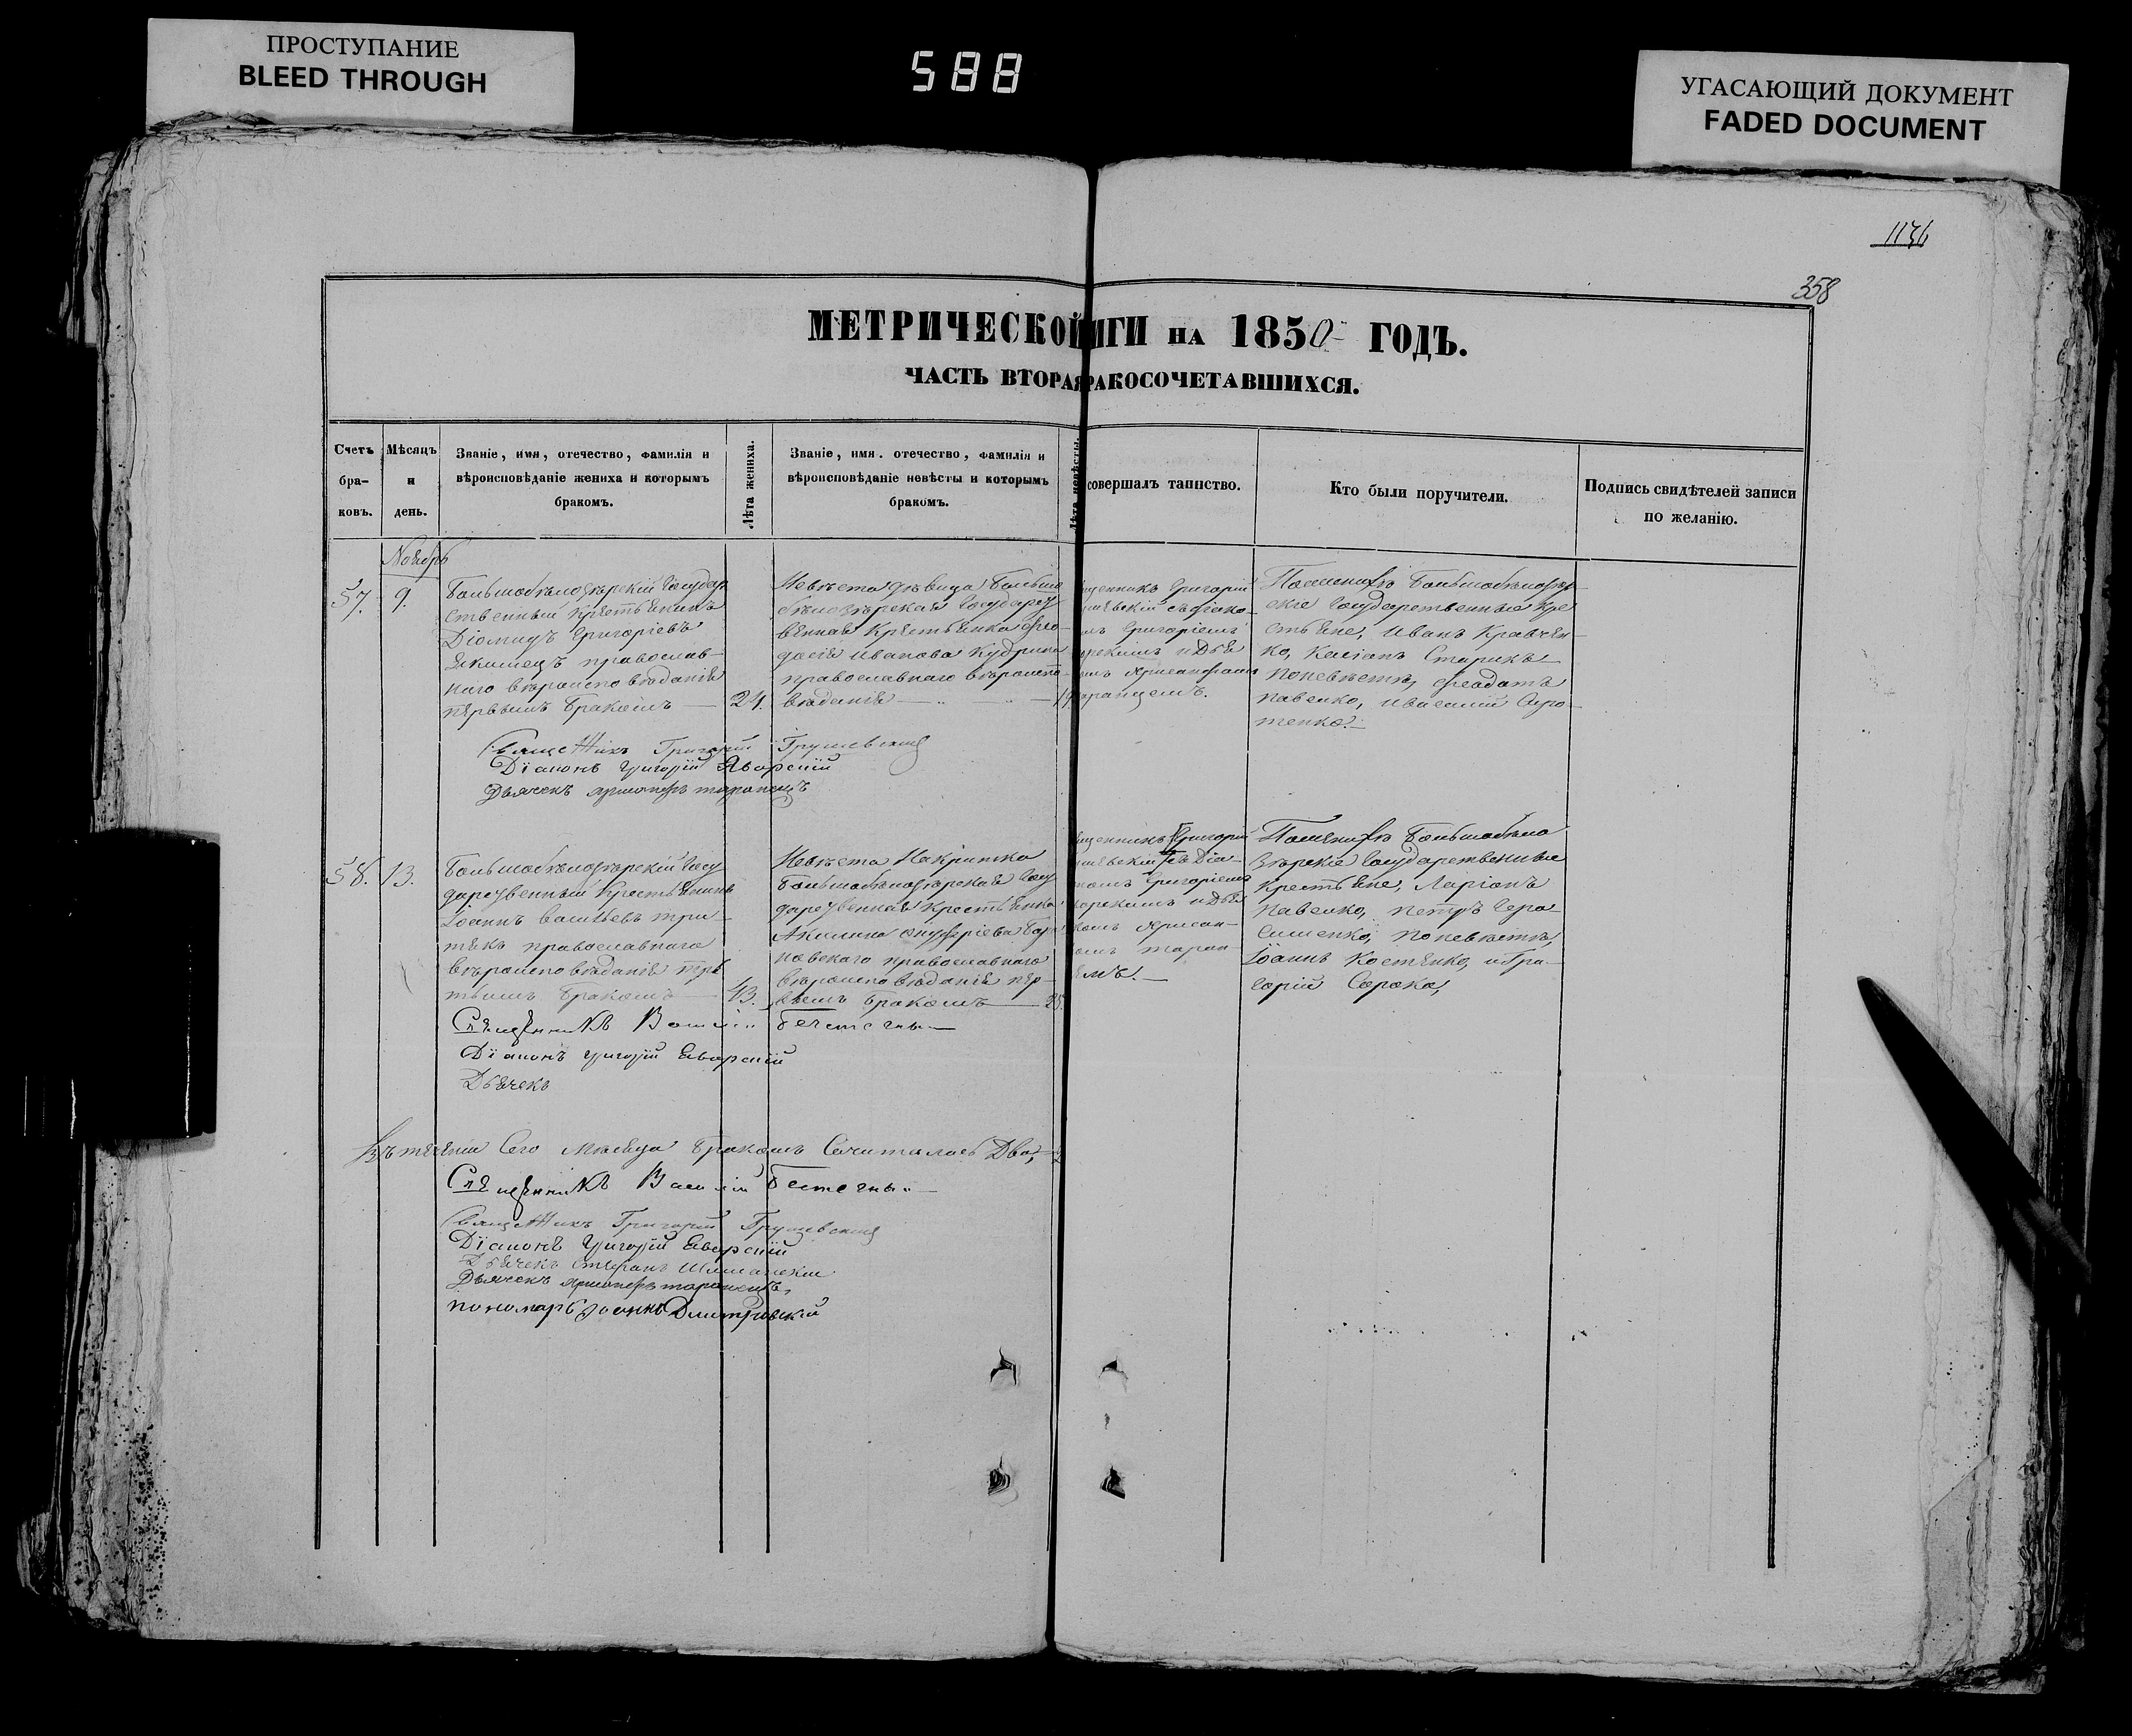 ПРОСТУПАНИЕ
BLEED THROUGH
588
УГАСАЮЩИЙ ДОКУМЕНТ
FADED DOCUMENT
1136
358
МЕТРИЧЕСКОЙ ИГИ НА 1850 ГОДЪ.
ЧАСТЬ ВТОРАЯ РАКОСОЧЕТАВШИХСЯ.
Счетъ бра-ковъ.
Мѣсяцъ и день.
Званіе, имя, отечество, фамилія и
вѣроисповѣданіе жениха и которымъ
бракомъ.
Лѣта жениха.
Званіе, имя. отечество, фамилія и
вѣроисповѣданіе невѣсты и которымъ
бракомъ.
Лѣта невѣсты.
совершалъ таинство.
Кто были поручители.
Подпись свидѣтелей записи
по желанію.
Ноябрь
57. 9.
Большобѣлозѣрскій Государ
ственный Крестьянинъ
Діомидъ Григоріевъ
Якимецъ православ-
наго вѣроисповѣданія
первымъ бракомъ
21.
Невѣста дѣвица Больше
бѣлозѣрская Государст
венная Крестьянка Фео-
досія Иванова Кудрина
православнаго вѣроиспо
вѣданія
19
щенникъ Григорій
шевскій съ діако-
мъ Григоріемъ
орскимъ и Дья
омъ Хрисанфомъ
аранцемъ.
По женихѣ Большобѣлозѣр-
скіе Государственные Кре
стьяне, Иванъ Кравчен-
ко, Касіанъ Старикъ
по невѣстѣ, Феодотъ
Павенко,
тенко.
Священникъ Григорій Грушевскій
Діаконъ Григорій Яворскій
Дьячекъ Хрисанфъ таранецъ
58. 13.
Большобѣлозѣрскій Госу
дарственный Крестьянинъ
Іоаннъ Васильевъ три-
тякъ православнаго
вѣроисповѣданія тре
тьимъ бракомъ
43.
Невѣста Покритка
Большобѣлозѣрская Госу
дарственная Крестьянка
Акилина Онуфріева
православнаго
вѣроисповѣданія пер-
вымъ бракомъ
25.
щенникъ Григорій
шевскій съ Діа-
номъ Григоріемъ
орскимъ и Дья
комъ Хрисан-
омъ таран
емъ.
По женихѣ Большобѣло
зѣрскіе Государственные
Крестьяне, Ларіонъ
Павенко, Петръ Гера-
сименко, по невѣстѣ,
Іоаннъ Костенко, и Гри-
горій Сорока,
Священникъ Василій
Діаконъ Григорій Яворскій
Дьячекъ
Въ теченіи Сего мѣсяца бракомъ Сочиталось Два, 2
Священникъ Василій
Священникъ Григорій Грушевскій
Діаконъ Григорій Яворскій
Дьячекъ Стефанъ
Дьячекъ Хрисанфъ таранецъ,
пономарь Іоаннъ Дмитровскій